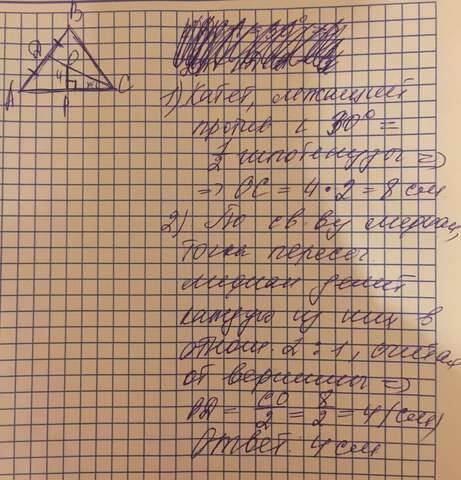 B
D
O
4
A
P
C
1) Катет, лежащий
против ∠ 30° =
1/2 гипотенузы =>
=> OC = 4 · 2 = 8 см
2) По св-ву медиан,
точка пересеч.
медиан делит
каждую из них в
отнош. 2:1, считая
от вершины =>
OD = CO/2 = 8/2 = 4 (см)
Ответ: 4 см